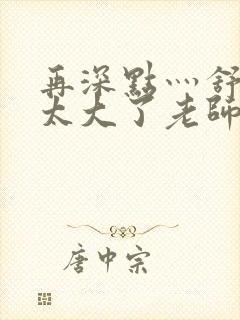 再深點灬舒
太大了老師
唐中宗